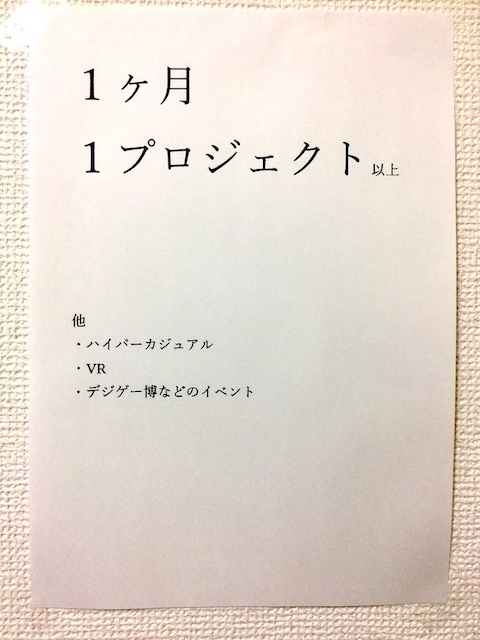 １ヶ月
１プロジェクト以上
他
・ハイパーカジュアル
・VR
・デジゲー博などのイベント